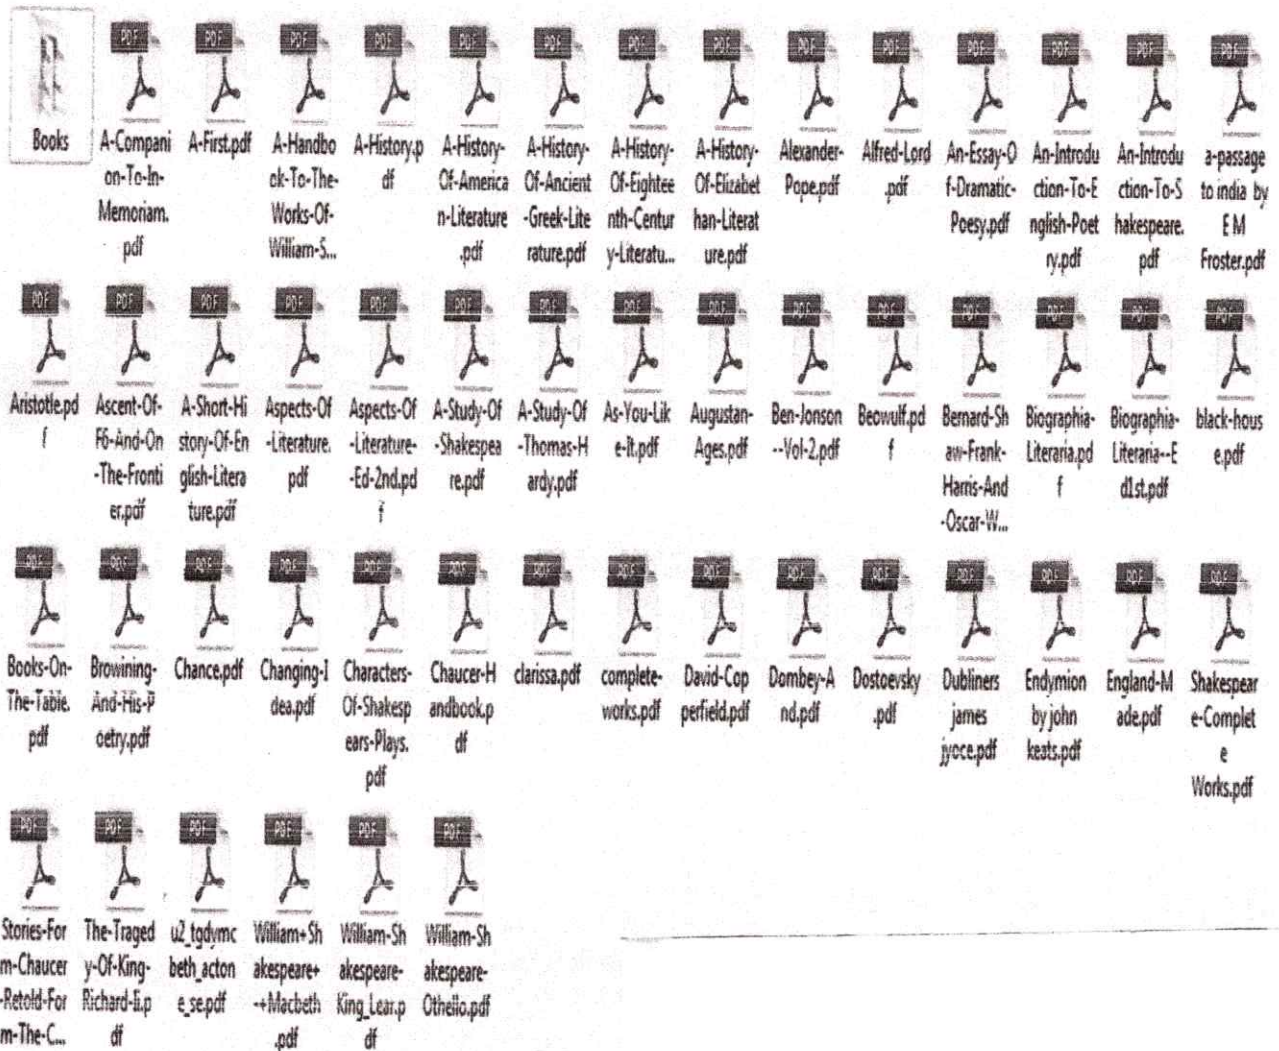 Books
PDF
A-Compani
on-To-In-
Memoriam.
pdf
PDF
A-First.pdf
PDF
A-Handbo
ok-To-The-
Works-Of-
William-S...
PDF
A-History.p
df
PDF
A-History-
Of-America
n-Literature
.pdf
PDF
A-History-
Of-Ancient
-Greek-Lite
rature.pdf
PDF
A-History-
Of-Eightee
nth-Centur
y-Literatu...
PDF
A-History-
Of-Elizabet
han-Literat
ure.pdf
PDF
Alexander-
Pope.pdf
PDF
Alfred-Lord
.pdf
PDF
An-Essay-O
f-Dramatic-
Poesy.pdf
PDF
An-Introdu
ction-To-E
nglish-Poet
ry.pdf
PDF
An-Introdu
ction-To-S
hakespeare.
pdf
PDF
a-passage
to india by
E M
Froster.pdf
PDF
Aristotle.pd
f
PDF
Ascent-Of-
F6-And-On
-The-Fronti
er.pdf
PDF
A-Short-Hi
story-Of-En
glish-Litera
ture.pdf
PDF
Aspects-Of
-Literature.
pdf
PDF
Aspects-Of
-Literature-
-Ed-2nd.pd
f
PDF
A-Study-Of
-Shakespea
re.pdf
PDF
A-Study-Of
-Thomas-H
ardy.pdf
PDF
As-You-Lik
e-it.pdf
PDF
Augustan-
Ages.pdf
PDF
Ben-Jonson
--Vol-2.pdf
PDF
Beowulf.pd
f
PDF
Bernard-Sh
aw-Frank-
Harris-And
-Oscar-W...
PDF
Biographia-
Literaria.pd
f
PDF
Biographia-
Literaria--E
d1st.pdf
PDF
black-hous
e.pdf
PDF
Books-On-
The-Table.
pdf
PDF
Browining-
And-His-P
oetry.pdf
PDF
Chance.pdf
PDF
Changing-I
dea.pdf
PDF
Characters-
Of-Shakesp
ears-Plays.
pdf
PDF
Chaucer-H
andbook.p
df
PDF
clarissa.pdf
PDF
complete-
works.pdf
PDF
David-Cop
perfield.pdf
PDF
Dombey-A
nd.pdf
PDF
Dostoevsky
.pdf
PDF
Dubliners
james
jyoce.pdf
PDF
Endymion
by john
keats.pdf
PDF
England-M
ade.pdf
PDF
Shakespear
e-Complet
e
Works.pdf
PDF
Stories-For
m-Chaucer
-Retold-For
m-The-C...
PDF
The-Traged
y-Of-King-
Richard-Ii.p
df
PDF
u2_tgdymc
beth_acton
e_se.pdf
PDF
William+Sh
akespeare+
-+Macbeth
.pdf
PDF
William-Sh
akespeare-
King_Lear.p
df
PDF
William-Sh
akespeare-
Othello.pdf